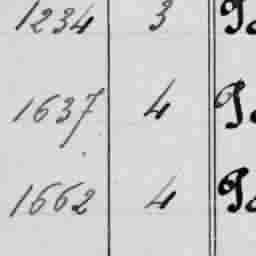 1234 3
1637 4
1662 4